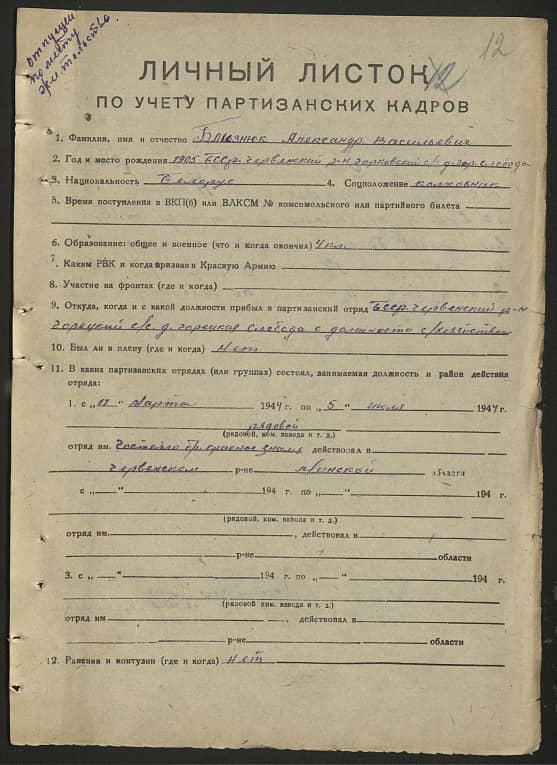 отпущен
по месту
жительст
12
ЛИЧНЫЙ ЛИСТОК
12
ПО УЧЕТУ ПАРТИЗАНСКИХ КАДРОВ
1. Фамилия, имя и отчество Близнюк Александр Васильевич
2. Год и место рождения 1905 БССР Червенский р-н с/с д. слобода
3. Национальность Белорус 4. Соцположение колхозник
5. Время поступления в ВКП(б) или ВЛКСМ № комсомольского или партийного билета
6. Образование: общее и военное (что и когда окончил) 4 кл.
7. Каким РВК и когда призван в Красную Армию
8. Участие на фронтах (где и когда)
9. Откуда, когда и с какой должности прибыл в партизанский отряд БССР Червенский р-н
с/с. д. слобода с должности с/хозяйством
10. Был ли в плену (где и когда) Нет
11. В каких партизанских отрядах (или группах) состоял, занимаемая должность и район действия
отряда:
1. с „ “ марта 1944 г. по „5“ июля 1944 г.
рядовой
(рядовой, ком. взвода и т. д.)
отряд им. Чостейло бр. красное знамя действовал в
червенском р-не Минской области
с „ “ 194 г. по „ “ 194 г.
(рядовой, ком. взвода и т. д.)
отряд им. , действовал в
р-не области
3. с „ “ 194 г. по „ “ 194 г.
(рядовой ком. взвода и т. д.)
отряд им , действовал в
р-не области
12. Ранения и контузии (где и когда) Нет